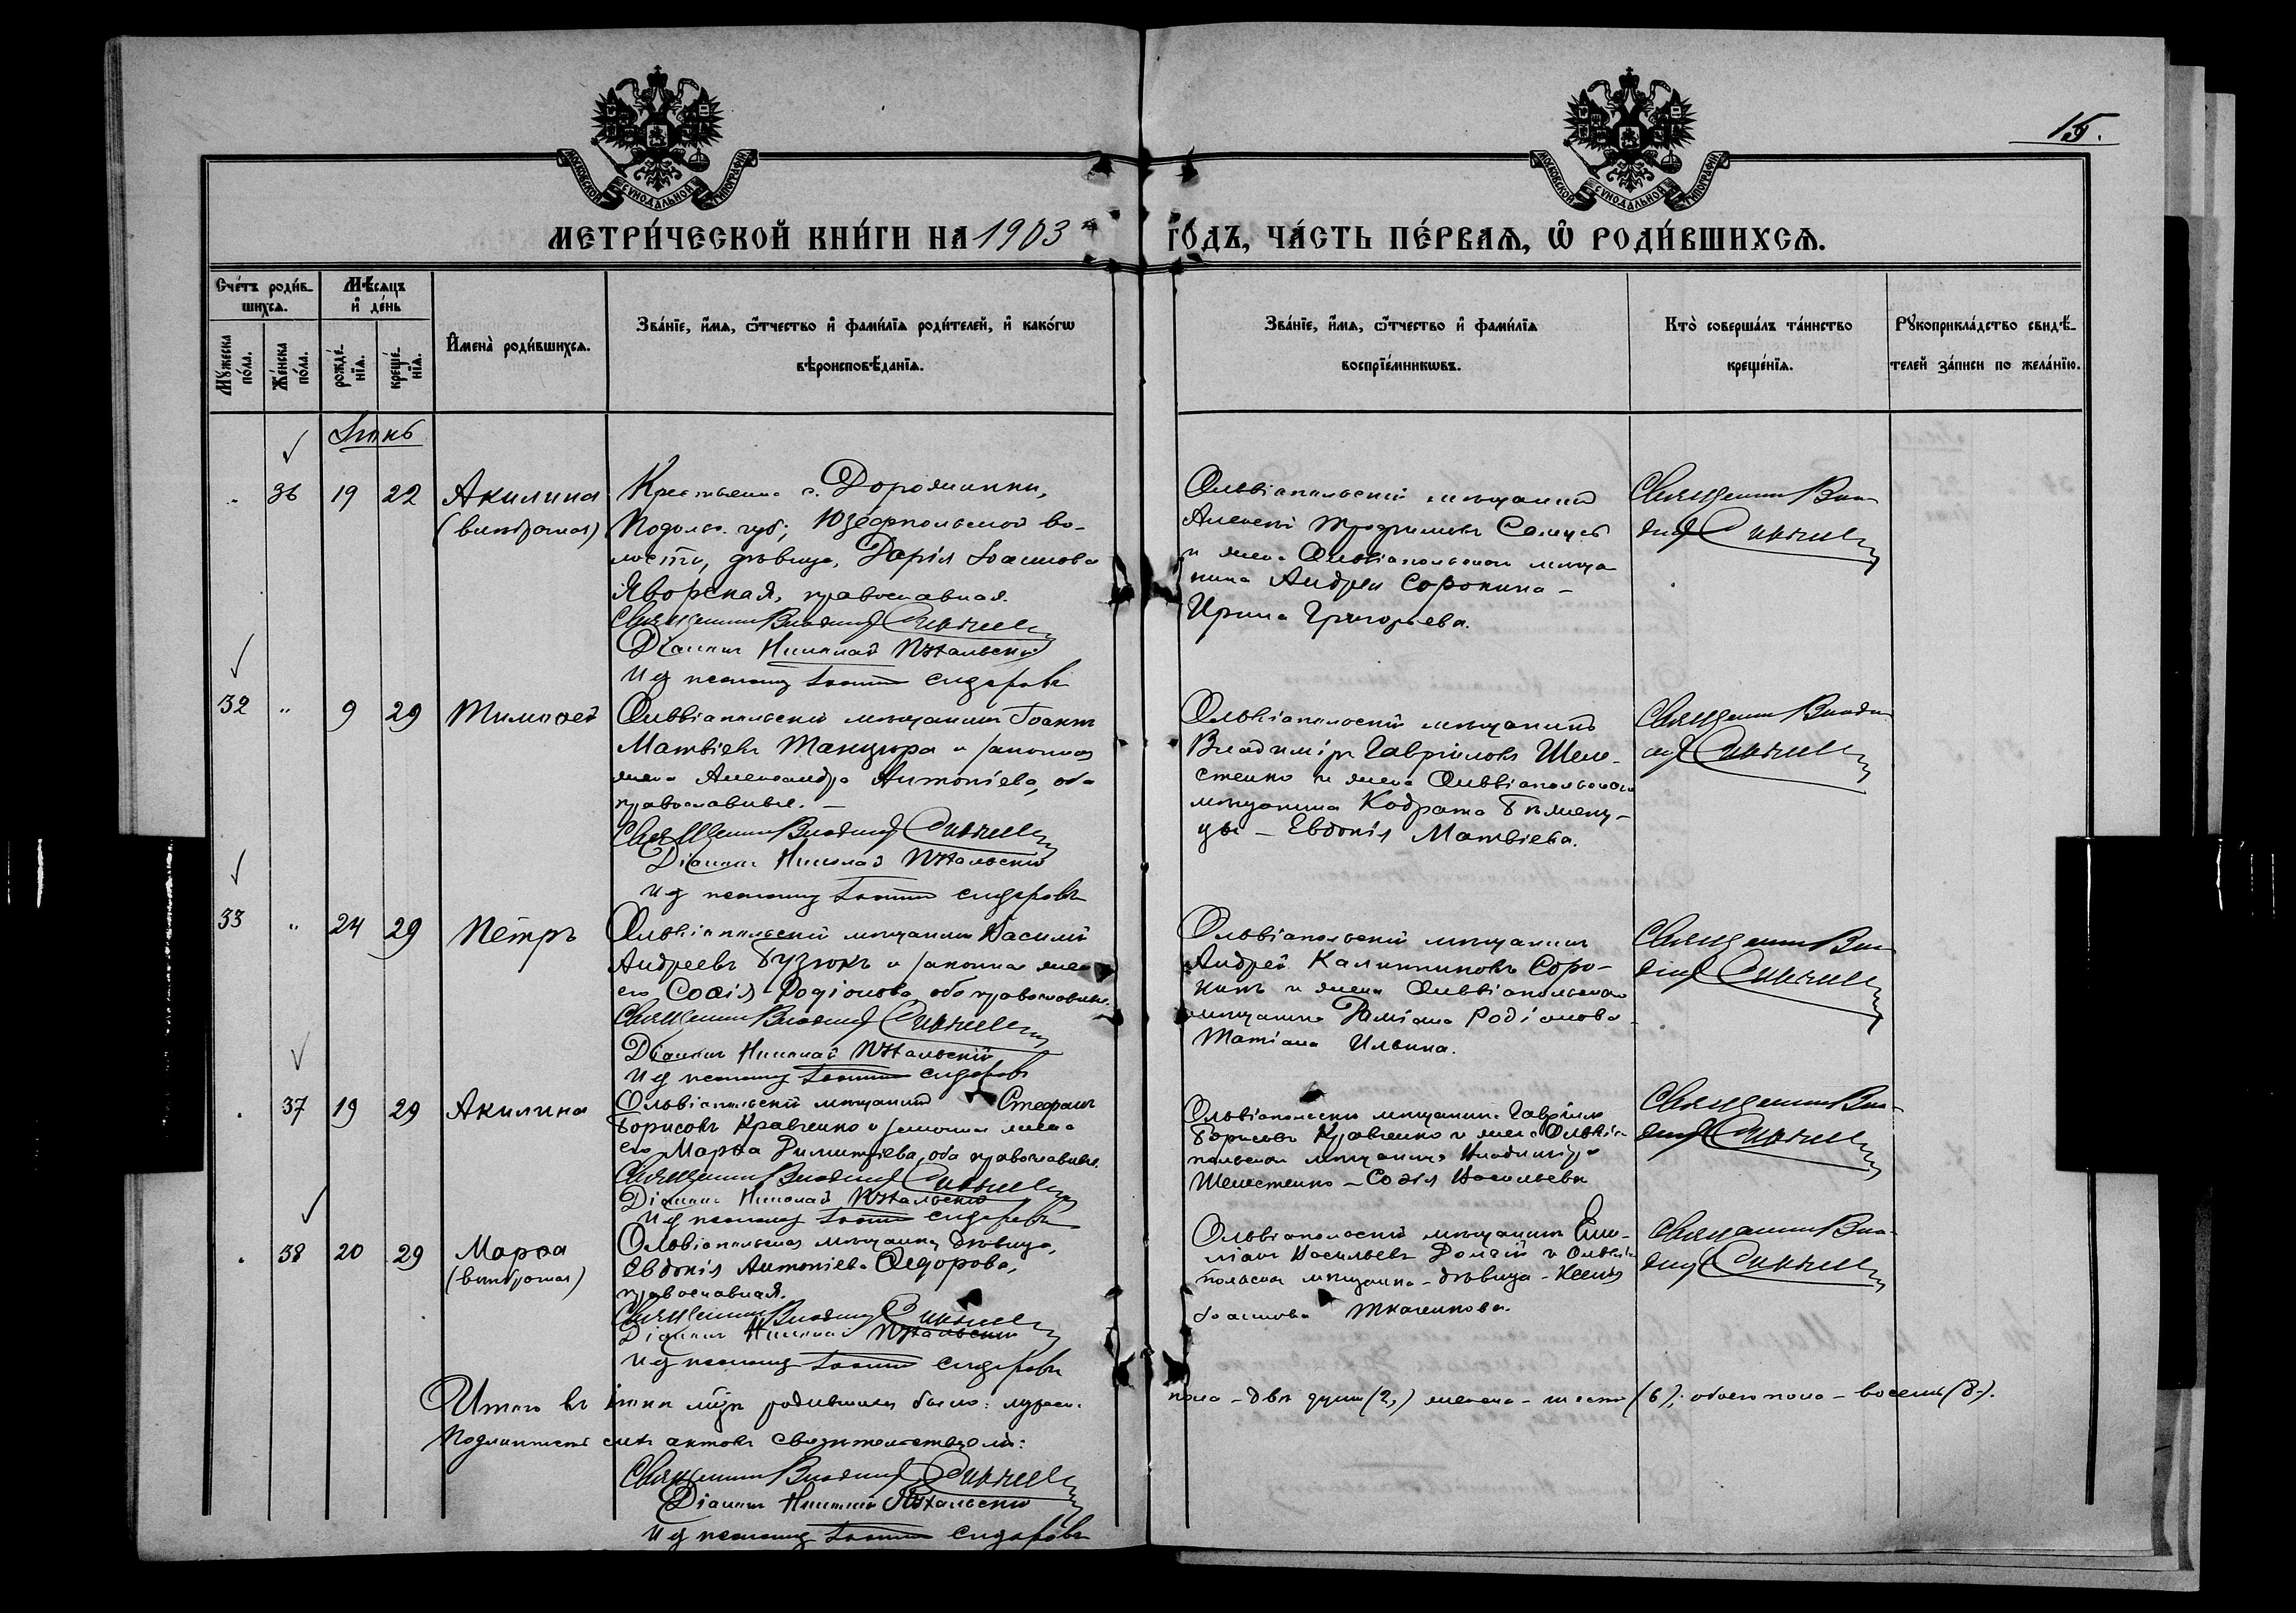 15.
МОСКОВСКОЙ СѴНОДАЛЬНОЙ ТИПОГРАФІИ
МОСКОВСКОЙ СѴНОДАЛЬНОЙ ТИПОГРАФІИ
МЕТРИ́ЧЕСКОЙ КНИ́ГИ НА 1903 ГО́ДЪ, ЧА́СТЬ ПЕ́РВАѦ, Ѡ҆ РОДИ́ВШИХСѦ.
Сче́тъ роди́в-
шихсѧ.
Мꙋ́жеска
по́ла.
Же́нска
по́ла.
Мѣ́сѧцъ
и҆ де́нь
рожде́-
нїѧ.
креще́-
нїѧ.
И҆мена̀ роди́вшихсѧ.
Зва́нїе, и҆́мѧ, ѻ҆́тчество и҆ фами́лїѧ роди́телей, и҆ како́гѡ
вѣроисповѣ́данїѧ.
Зва́нїе, и҆́мѧ, ѻ҆́тчество и҆ фами́лїѧ
воспрїе́мникѡвъ.
Кто̀ соверша́лъ та́инство
креще́нїѧ.
Рꙋкоприкла́дство свидѣ́-
телей за́писи по жела́нїю.
Іюнь
36 19 22 Акилина
(внѣбрачная)
Крестьянка с.
Подольс. губ., Юзефпольской во-
лости, дѣвица, Дарія Іоаннова
Яворская, православная.
Священникъ Владимір
Діаконъ Николай
И д псаломщ Іоаннъ Сидоровъ
Ольвіопольскій мѣщанинъ
Алексѣй Трофимовъ
и жена Ольвіопольскаго мѣща
нина Андрея Сорокина –
Ирина Григорьева.
Священникъ Вла
димір
32 " 9 29 Тимоѳей
Ольвіопольскій мѣщанинъ Іоаннъ
Матвіевъ Танцюра и законная
жена Александра Антоніева, оба
православные. –
Священникъ Владимір
Діаконъ Николай
И д псаломщ Іоаннъ Сидоровъ
Ольвіопольскій мѣщанинъ
Владиміръ Гавріиловъ Шеле-
стенко и жена Ольвіопольскаго
мѣщанина Кодрата
цы – Евдокія Матвіева.
Священникъ Влади
мір
33 " 24 29 Петръ
Ольвіопольскій мѣщанинъ Василій
Андреевъ Бузюкъ и законная жена
его Софія Родіонова оба православные.
Священникъ Владимір
Діаконъ Николай
И д псаломщ Іоаннъ Сидоровъ
Ольвіопольскій мѣщанинъ
Андрей Калинниковъ Соро-
кинъ и жена Ольвіопольскаго
мѣщанина Родіонова
Татіана Ильина.
Священникъ Вла
димір
37 19 29 Акилина
Ольвіопольскій мѣщанинъ Стефанъ
Борисовъ Кравченко и законная жена
его Марѳа Димитріева, оба православные.
Священникъ Владимір
Діаконъ Николай
И д псаломщ Іоаннъ Сидоровъ
Ольвіопольскій мѣщанинъ Гавріилъ
Борисовъ Кравченко и жена Ольвіо-
польскаго мѣщанина Владиміра
Шелестенко – Софія Васильева
Священникъ Вла-
димір
38 20 29 Марѳа
(внѣбрачная)
Ольвіопольская мѣщанка, дѣвица,
Евдокія Антоніева Ѳедорова,
православная.
Священникъ Владимір
Діаконъ Николай
И д псаломщ Іоаннъ Сидоровъ
Ольвіопольскій мѣщанинъ Еми-
ліанъ Васильевъ и Ольвіо-
польская мѣщанка – дѣвица – Ксенія
Іоаннова Ткаченкова.
Священникъ Вла-
димір
Итого въ іюнѣ мцѣ родившихся было: мужеск. пола – двѣ души (2,) женска – шесть (6); обоего пола – восемь (8).
Подлинность сихъ актовъ свидѣтельствуемъ:
Священникъ Владимір
Діаконъ Николай
И д псаломщ Іоаннъ Сидоровъ